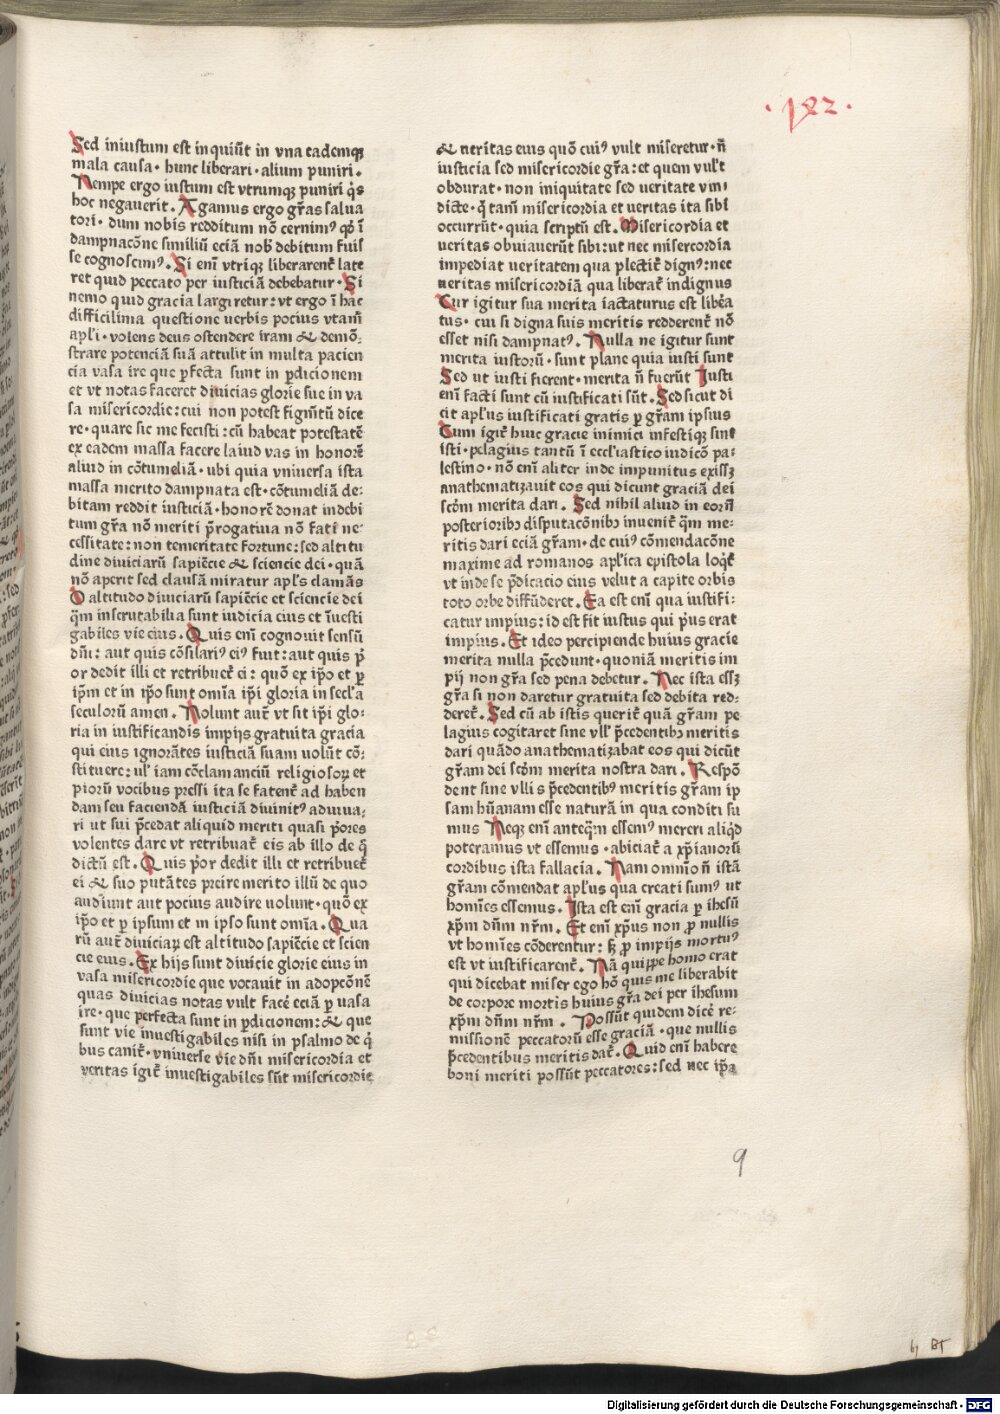 ·182·
Sed iniustum est inquiūt in vna eademqꝫ
mala causa· hunc liberari· alium puniri·
Nempe ergo iustum est vtrumqꝫ puniri q̇s
hoc negauerit· Agamus ergo gr̄as salua
tori· dum nobis redditum nō cernimꝰ qd̛ ī
dampnacōne similiū eciā nob̛ debitum fuis
se cognoscimꝰ· Si enī vtriqꝫ liberarent̛ late
ret quid peccato per iusticiā debebatur· Si
nemo quid gracia largiretur: vt ergo ī hac
difficilima questione verbis pocius vtam̄
apl̛i· volens deus ostendere iram & demō:
strare potenciā suā attulit in multa pacien
cia vasa ire que ꝑfecta sunt in ꝑdicionem
et vt notas faceret diuicias glorie sue in va
sa misericordie: cui non potest figmētū dice
re· quare sic me fecisti: cū habeat potestatē
ex eadem massa facere laiud vas in honorē
aliud in cōtumeliā· ubi quia vniuersa ista
massa merito dampnata est· cōtumeliā de:
bitam reddit iusticiā· honorē donat indebi
tum gr̄a nō meriti p̄rogatiua nō fati ne:
cessitate: non temeritate fortune: sed altitu
dine diuiciarū sapiēcie & sciencie dei· quā
nō aperit sed clausā miratur apl̛s clamās
O altitudo diuiciarū sapiēcie et sciencie dei
q̄m inscrutabilia sunt iudicia eius et īuesti
gabiles vie eius· Quis enī cognouit sensū
dn̄i: aut quis cōsilariꝰ eiꝰ fuit: aut quis p̛
or dedit illi et retribuet̛ ei: quō ex ip̄o et ꝑ
ip̄m et in ip̄o sunt om̄ia ip̄i gloria in sec̛la
seculorū amen· Nolunt aut̄ vt sit ip̄i glo:
ria in iustificandis impijs gratuita gracia
qui eius ignorātes iusticiā suam uolūt cō:
stituere: ul̛ iam cōclamanciū religiosoꝝ et
piorū vocibus pressi ita se fatent̛ ad haben
dam seu faciendā iusticiā diuinitꝰ adiuua:
ri ut sui p̄cedat aliquid meriti quasi p̛ores
volentes dare vt retribuat̛ eis ab illo de q̄
dictū est· Quis p̛or dedit illi et retribuet̛
ei & suo putātes preire merito illū de quo
audiunt aut pocius audire uolunt· quō ex
ip̄o et ꝑ ipsum et in ipso sunt om̄ia· Qua
rū aut̄ diuiciaꝝ est altitudo sapiēcie et scien
cie eius· Ex hijs sunt diuicie glorie eius in
vasa misericordie que vocauit in adopcōnē
quas diuicias notas vult facē eciā ꝑ uasa
ire· que perfecta sunt in ꝑdicionem: & que
sunt vie inuestigabiles nisi in psalmo de q̇
bus canit̛· vniuerse vie dn̄i misericordia et
veritas igit̛ inuestigabiles sūt misericordie
& ueritas eius quō cuiꝰ vult miseretur· n̄
iusticia sed misericordie gr̄a: et quem vul̛t
obdurat· non iniquitate sed ueritate vin:
dicte· q̄ tam̄ misericordia et ueritas ita sibi
occurrūt· quia scriptū est· Misericordia et
ueritas obuiauerūt sibi: ut nec misericordia
impediat ueritatem qua plectit̛ dignꝰ: nec
ueritas misericordiā qua liberat̛ indignus
Cur igitur sua merita iactaturus est lib̛ea
tus· cui si digna suis meritis redderent̛ nō
esset nisi dampnatꝰ· Nulla ne igitur sunt
merita iustorū· sunt plane quia iusti sunt
Sed ut iusti fierent· merita n̄ fuerūt Iusti
enī facti sunt cū iustificati sūt· Sed sicut di
cit apl̛us iustificati gratis ꝑ gr̄am ipsius
Cum igit̛ huic gracie inimici infestiqꝫ sint
isti· pelagius tantū ī eccl̛iastico iudicō pa:
lestino· nō enī aliter inde impunitus exissꝫ
anathematizauit eos qui dicunt graciā dei
scd̄m merita dari· Sed nihil aliud in eorū
posterioribꝫ disputacōnibꝫ inuenit̛ q̄m me:
ritis dari eciā gr̄am· de cuiꝰ cōmendacōne
maxime ad romanos apl̛ica epistola loq̇t̛
vt inde se p̄dicacio eius velut a capite orbis
toto orbe diffūderet· Ea est enī qua iustifi:
catur impius: id est fit iustus qui p̛us erat
impius· Et ideo percipiende huius gracie
merita nulla p̄cedunt· quoniā meritis im
pij non gr̄a sed pena debetur· Nec ista essꝫ
gr̄a si non daretur gratuita sed debita red:
deret̛· Sed cū ab istis querit̛ quā gr̄am pe
lagius cogitaret sine vll̛ p̄cedentibꝫ meritis
dari quādo anathematizabat eos qui dicūt
gr̄am dei scd̄m merita nostra dari· Respō
dent sine vllis p̄cedentibꝰ meritis gr̄am ip
sam hūanam esse naturā in qua conditi su
mus Neqꝫ enī anteq̄m essemꝰ mereri aliq̇d
poteramus vt essemus· abiciat̛ a xp̄ianorū
cordibus ista fallacia· Nam omnīo n̄ istā
gr̄am cōmendat apl̛us qua creati sumꝰ ut
homīes essemus· Ista est enī gracia ꝑ ihesū
xp̄m dn̄m nr̄m· Et enī xp̄us non ꝓ nullis
vt homīes cōderentur: sꝫ ꝓ impijs mortuꝰ
est vt iustificarent̛· Nā quippe homo erat
qui dicebat miser ego hō quis me liberabit
de corpore mortis huius gr̄a dei per ihesum
xp̄m dn̄m nr̄m· Possūt quidem dicē re:
missionē peccatorū esse graciā· que nullis
p̄cedentibus meritis dat̛· Quid enī habere
boni meriti possūt peccatores: sed nec ip̄a
9
Digitalisierung gefördert durch die Deutsche Forschungsgemeinschaft - DFG